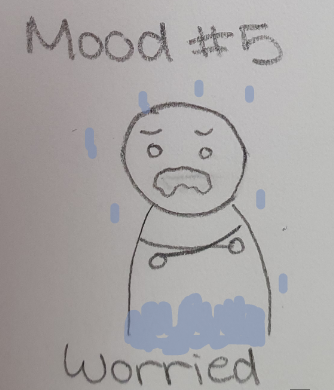 Mood #5
Worried